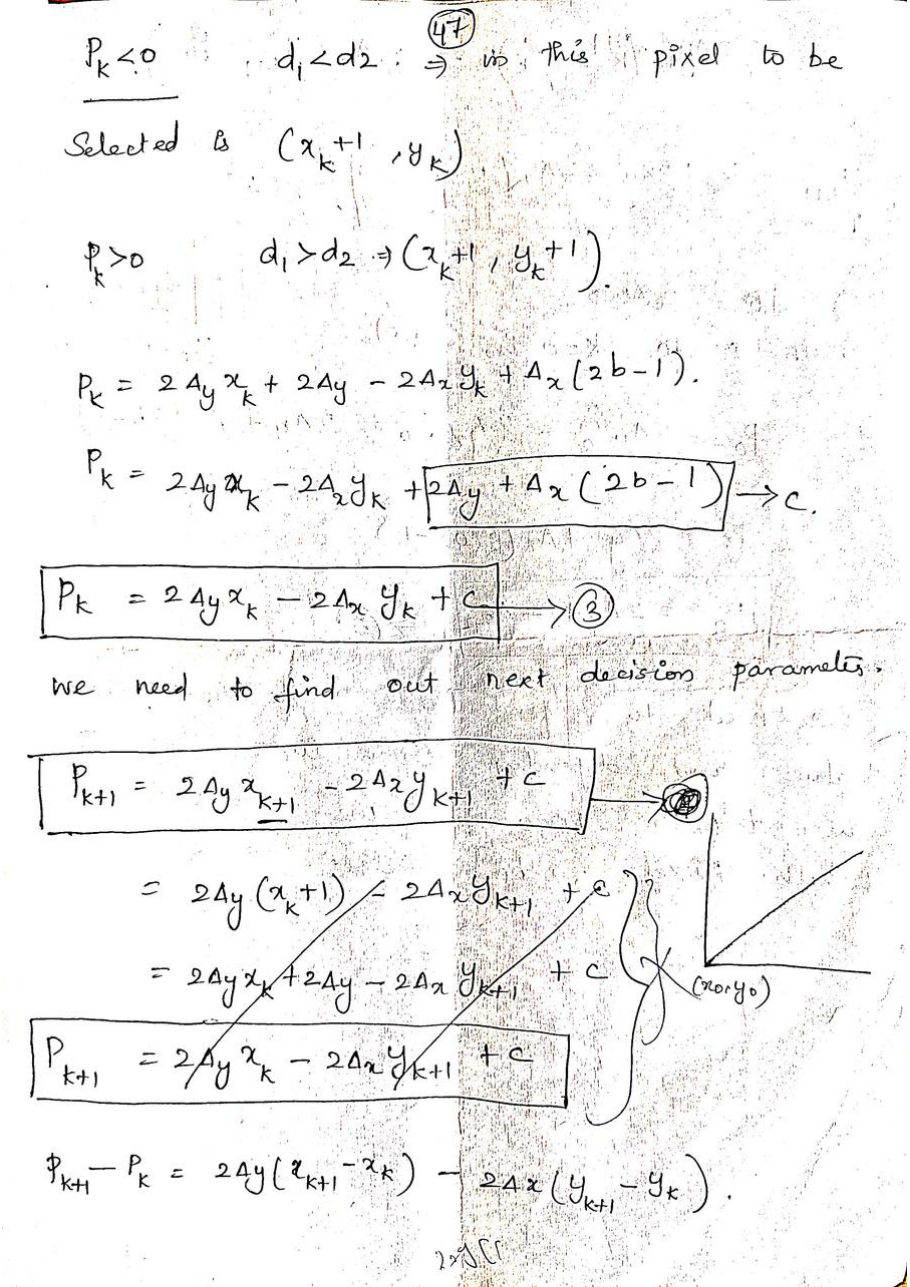 47
Pk <0 d1 < d2 ⇒ in this pixel to be
Selected is (xk+1 , yk)
Pk >0 d1 > d2 ⇒ (xk+1 , yk+1).
Pk = 2Δy xk + 2Δy - 2Δx yk + Δx (2b-1).
Pk = 2Δy xk - 2Δx yk + 2Δy + Δx (2b-1) → c.
Pk = 2Δy xk - 2Δx yk + c → 3
we need to find out next decision parameter.
Pk+1 = 2Δy xk+1 - 2Δx yk+1 + c →
= 2Δy (xk+1) - 2Δx yk+1 + c
= 2Δy xk + 2Δy - 2Δx yk+1 + c
(x0, y0)
Pk+1 = 2Δy xk - 2Δx yk+1 + c
Pk+1 - Pk = 2Δy (xk+1 - xk) - 2Δx (yk+1 - yk).